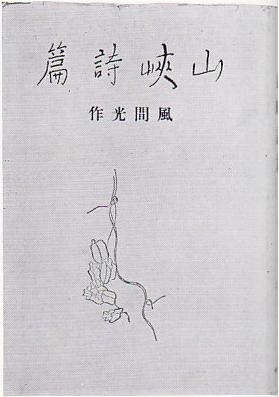 山峽詩篇
風間光作